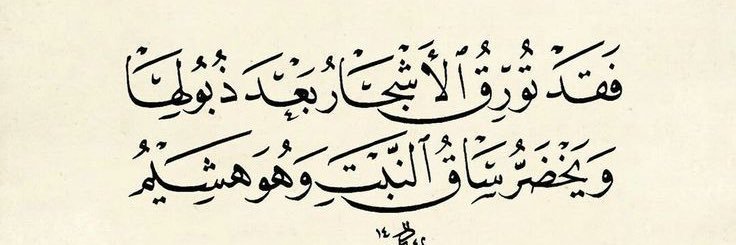 فَقَدْ تُورِقُ ٱلْأَشْجَارُ بَعْدَ ذُبُولِهَا
وَيَخْضَرُّ سَاقُ ٱلنَّبْتِ وَهُوَ هَشِيمُ